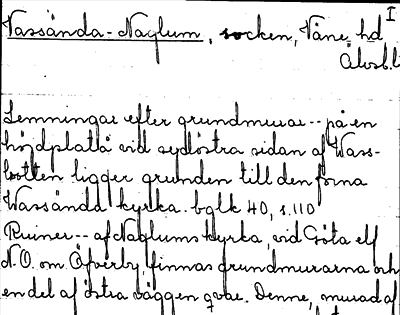 Vassända-Naglum, socken, Väne hd I
Älvsb.l
Lemningar efter grundmurar -- på en
höjdplattå vid sydöstra sidan af Wass-
botten ligger grunden till den forna
Wassända kyrka. bglk 40, s.110
Ruiner -- af Naglums kyrka, vid Göta elf
N.O. om Öfverby finnas grundmurarna och
en del af östra väggen qvar. Denne, murad af